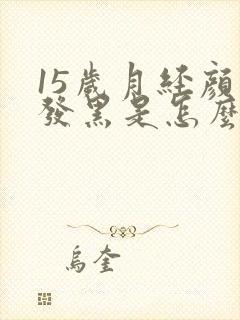 15歲月經顏
發黑是怎麼
烏奎